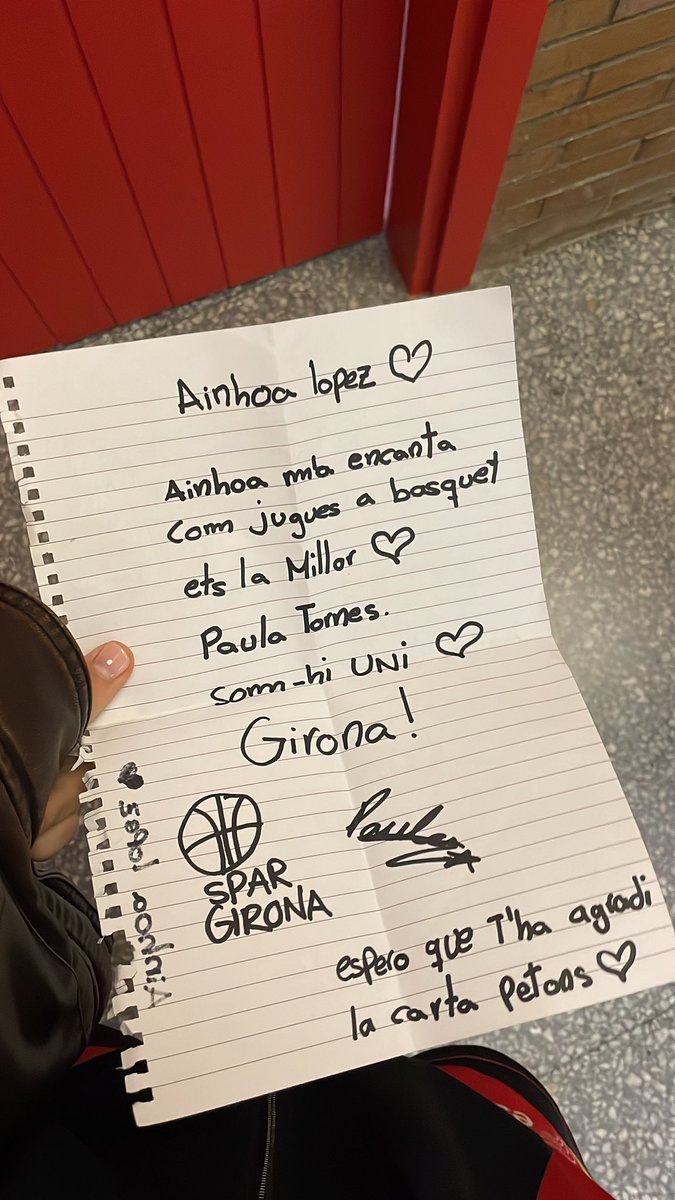 Ainhoa lopez ♡
Ainhoa mb encanta
Com jugues a basquet
ets la Millor ♡
Paula Tornes.
som-hi UNi ♡
Girona!
SPAR
GIRONA
Paula
espero que T'ha agradi
la carta Petons ♡
Ainhoa lopez ♥